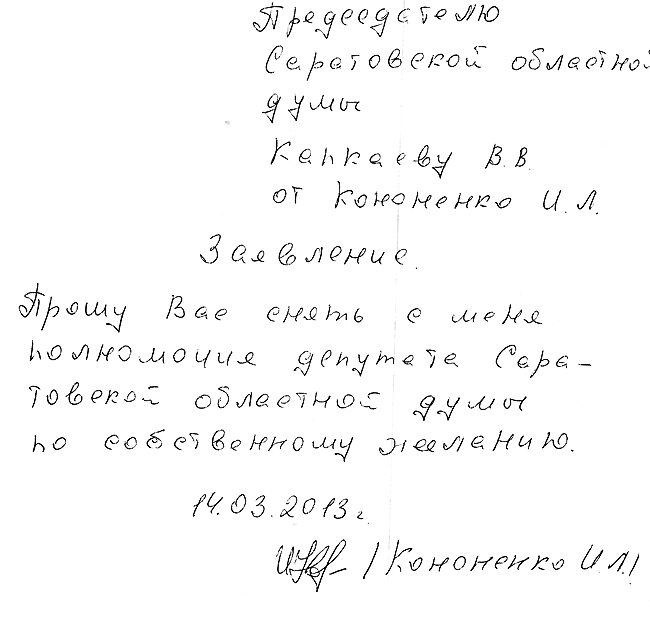 Председателю
Саратовской областной
думы
Капкаеву В.В.
от Кононенко И.Л.
Заявление.
Прошу Вас снять с меня
полномочия депутата Сара-
товской областной думы
по собственному желанию.
14.03.2013 г.
/Кононенко И.Л./